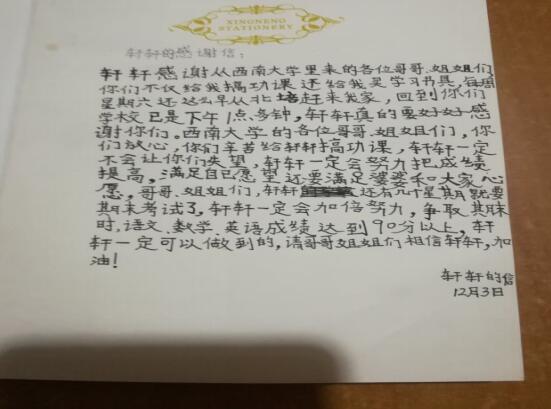 XINGNENG
STATIONERY
轩轩的感谢信:
轩轩感谢从西南大学里来的各位哥哥、姐姐们
你们不仅给我搞功课还给我买学习书具,每周
星期六还这么早从北培赶来我家,回到你们
学校已是下午1点多钟,轩轩真的要好好感
谢你们。西南大学的各位哥哥、姐姐们,你
们放心,你们辛苦给轩轩搞功课,轩轩一定
不会让你们失望,轩轩一定会努力把成绩
提高,满足自己愿望还要满足婆婆和大家心
愿,哥哥、姐姐们,轩轩还有几个星期就要
期末考试了,轩轩一定会加倍努力,争取其末
时,语文、数学、英语成绩达到90分以上,轩
轩一定可以做到的,请哥哥姐姐们相信轩轩,加
油!
轩轩的信
12月3日